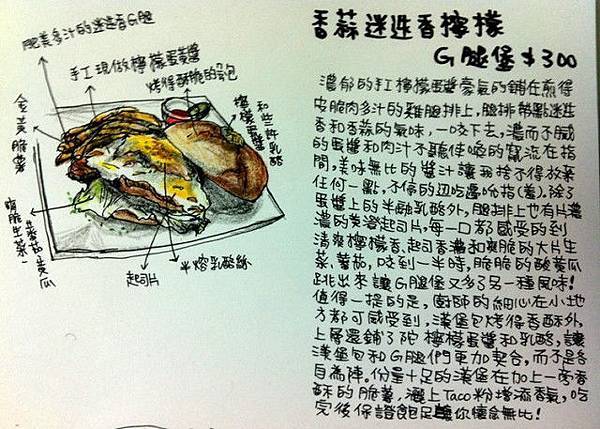 香蒜迷迭香檸檬
G腿堡$300
肥美多汁的迷迭香G腿
手工現做檸檬蛋黃醬
烤得酥脆的麵包
檸檬蛋黃醬
和些許乳酪
金黃脆薯
爽脆生菜、番茄、黃瓜
起司片
半熔乳酪絲
濃郁的手工檸檬蛋醬豪氣的鋪在煎得
皮脆肉多汁的雞腿排上,腿排帶點迷迭
香和香蒜的氣味,一咬下去,濃而不膩
的蛋醬和肉汁不聽使喚的竄流在指
間,美味無比的醬汁讓我捨不得放棄
任何一點,不停的邊吃邊吮指(羞)。除了
蛋醬上的半融乳酪外,腿排上也有片濃
濃的黃澄起司片,每一口都感受的到
清爽檸檬香、起司香濃和爽脆的大片生
菜、蕃茄,吃到一半時,脆脆的酸黃瓜
跳出來讓G腿堡又多了另一種風味!
值得一提的是,廚師的細心在小地
方都可感受到,漢堡包烤得香酥外,
上層還鋪了陀檸檬蛋醬和乳酪,讓
漢堡包和G腿們更加契合,而不是各
自為陣。份量十足的漢堡在加上一旁香
酥的脆薯,灑上Taco粉增添香氣,吃
完後保證飽足讓你懷念無比!